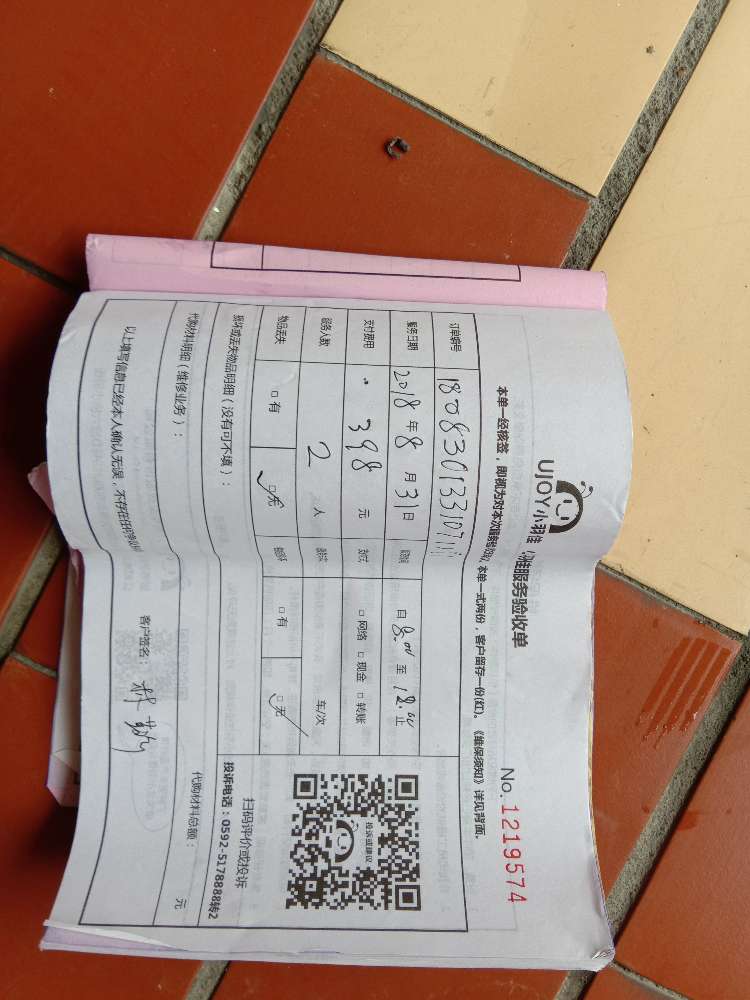 UJOY小羽佳
服务验收单
No.1219574
本单一经核签，即视为对本次服务验收 本单一式两份，客户留存一份(红)。《维保须知》详见背面。
订单编号 18083013310711
服务日期 2018年8月31日 自8:00至12:00止
支付费用 398元 □网络 □现金 □转账
服务人数 2人 车/次
物品丢失 □有 ☑无 □有 ☑无
投诉或建议
扫码评价或投诉
投诉电话：0592-5178888转2
损坏或丢失物品明细（没有可不填）：
代购材料明细（维修业务）： 代购材料总额： 元
以上填写信息已经本人确认无误，不存在任何争议
客户签名：